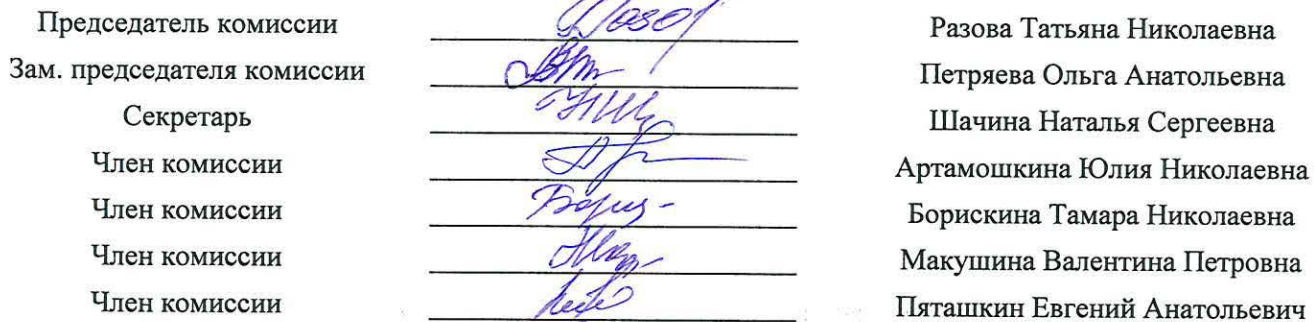 Председатель комиссии Разова Татьяна Николаевна
Зам. председателя комиссии Петряева Ольга Анатольевна
Секретарь Шачина Наталья Сергеевна
Член комиссии Артамошкина Юлия Николаевна
Член комиссии Борискина Тамара Николаевна
Член комиссии Макушина Валентина Петровна
Член комиссии Пяташкин Евгений Анатольевич